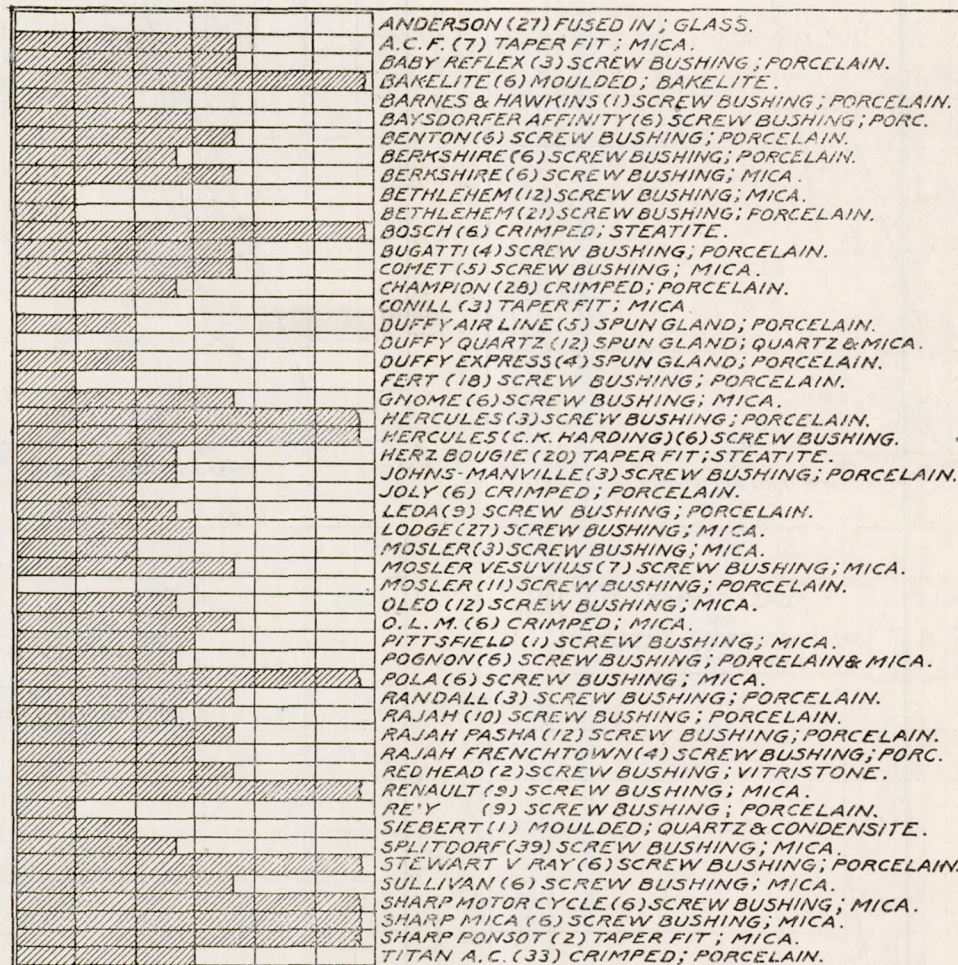 ANDERSON (27) FUSED IN; GLASS.
A.C.F. (7) TAPER FIT; MICA.
BABY REFLEX (3) SCREW BUSHING; PORCELAIN.
BAKELITE (6) MOULDED; BAKELITE.
BARNES & HAWKINS (1) SCREW BUSHING; PORCELAIN.
BAYSDORFER AFFINITY (6) SCREW BUSHING; PORC.
BENTON (6) SCREW BUSHING; PORCELAIN.
BERKSHIRE (6) SCREW BUSHING; PORCELAIN.
BERKSHIRE (6) SCREW BUSHING; MICA.
BETHLEHEM (12) SCREW BUSHING; MICA.
BETHLEHEM (21) SCREW BUSHING; PORCELAIN.
BOSCH (6) CRIMPED; STEATITE.
BUGATTI (4) SCREW BUSHING; PORCELAIN.
COMET (5) SCREW BUSHING; MICA.
CHAMPION (28) CRIMPED; PORCELAIN.
CONILL (3) TAPER FIT; MICA
DUFFY AIR LINE (5) SPUN GLAND; PORCELAIN.
DUFFY QUARTZ (12) SPUN GLAND; QUARTZ & MICA.
DUFFY EXPRESS (4) SPUN GLAND; PORCELAIN.
FERT (18) SCREW BUSHING; PORCELAIN.
GNOME (6) SCREW BUSHING; MICA.
HERCULES (3) SCREW BUSHING; PORCELAIN.
HERCULES (C.K. HARDING) (6) SCREW BUSHING.
HERZ BOUGIE (20) TAPER FIT; STEATITE.
JOHNS-MANVILLE (3) SCREW BUSHING; PORCELAIN.
JOLY (6) CRIMPED; PORCELAIN.
LEDA (9) SCREW BUSHING; PORCELAIN.
LODGE (27) SCREW BUSHING; MICA.
MOSLER (3) SCREW BUSHING; MICA.
MOSLER VESUVIUS (7) SCREW BUSHING; MICA.
MOSLER (11) SCREW BUSHING; PORCELAIN.
OLEO (12) SCREW BUSHING; MICA.
O.L.M. (6) CRIMPED; MICA.
PITTSFIELD (1) SCREW BUSHING; MICA.
POGNON (6) SCREW BUSHING; PORCELAIN & MICA.
POLA (6) SCREW BUSHING; MICA.
RANDALL (3) SCREW BUSHING; PORCELAIN.
RAJAH (10) SCREW BUSHING; PORCELAIN.
RAJAH PASHA (12) SCREW BUSHING; PORCELAIN.
RAJAH FRENCHTOWN (4) SCREW BUSHING; PORC.
RED HEAD (2) SCREW BUSHING; VITRISTONE.
RENAULT (9) SCREW BUSHING; MICA.
(9) SCREW BUSHING; PORCELAIN.
SIEBERT (1) MOULDED; QUARTZ & CONDENSITE.
SPLITDORF (39) SCREW BUSHING; MICA.
STEWART V RAY (6) SCREW BUSHING; PORCELAIN.
SULLIVAN (6) SCREW BUSHING; MICA.
SHARP MOTOR CYCLE (6) SCREW BUSHING; MICA.
SHARP MICA (6) SCREW BUSHING; MICA.
SHARP PONSOT (2) TAPER FIT; MICA.
TITAN A.C. (33) CRIMPED; PORCELAIN.